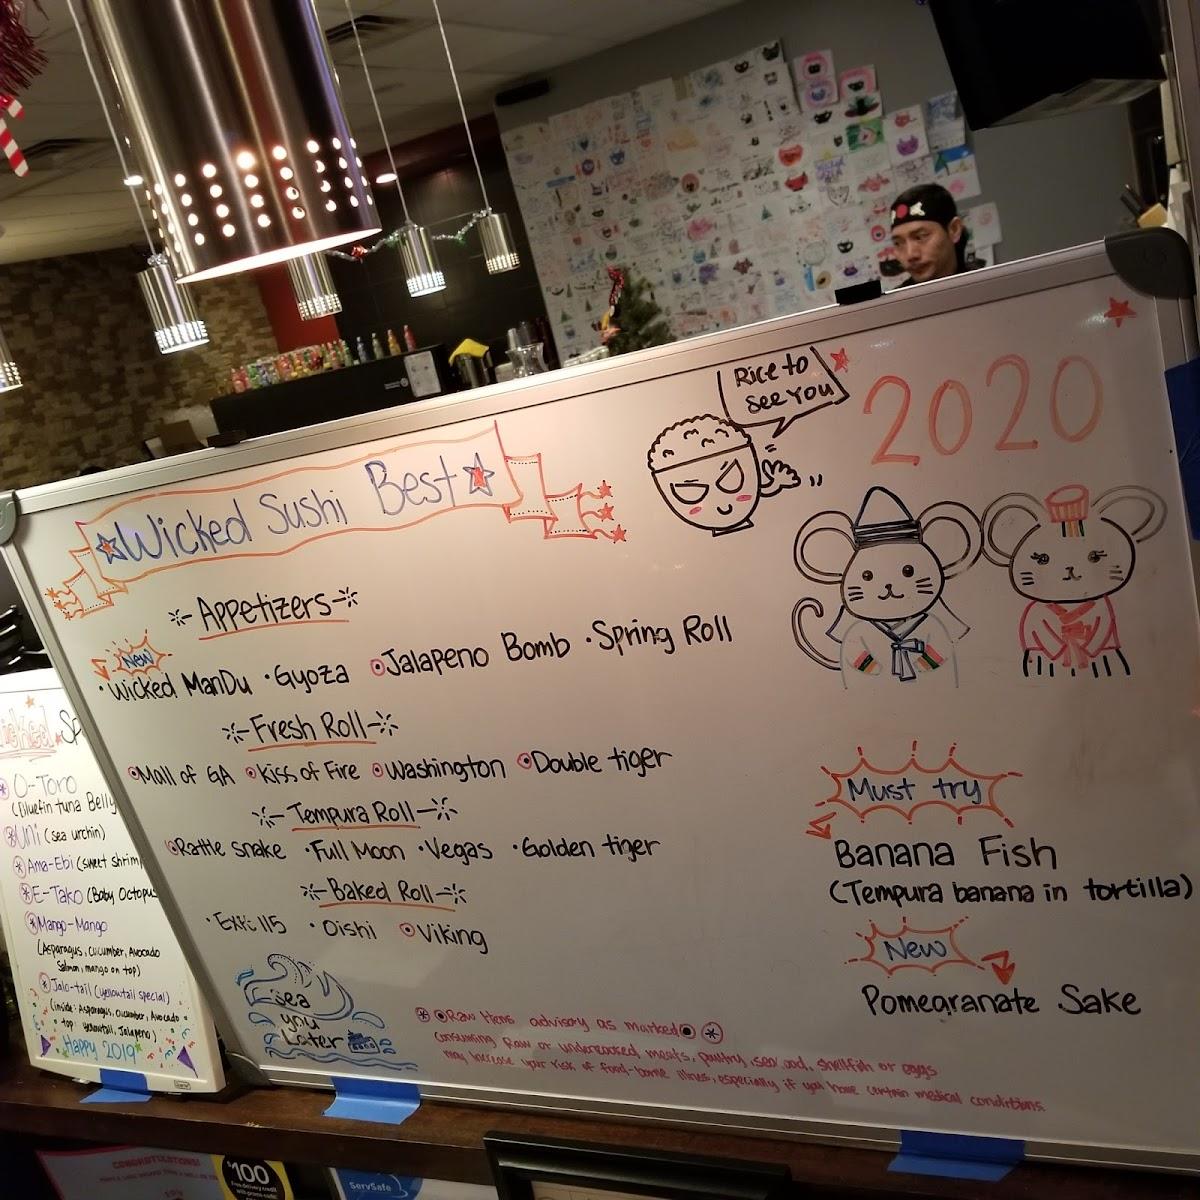 Rice to
see you
2020
Wicked Sushi Best
Appetizers
New
Wicked ManDu · Gyoza Jalapeno Bomb · Spring Roll
Fresh Roll
Mall of GA Kiss of Fire Washington Double tiger
Tempura Roll
Rattle snake · Full Moon · Vegas · Golden tiger
Baked Roll
· Oishi Viking
sea
you
Later
Must try
Banana Fish
(Tempura banana in tortilla)
New
Pomegranate Sake
Raw Items advisory as marked
Consuming Raw or undercooked meats, poultry, sea ood, shellfish or eggs
may increase your risk of food-borne illness, especially if you have certain medical conditions.
O-Toro
(Bluefin tuna Belly
Uni (sea urchin)
Ama-Ebi (sweet shrim
E-Tako (Baby Octopu
Mango-Mango
(Asparagus, cucumber, Avocado
Salmon, mango on top)
Jalo-tail (yellowtail special)
(inside: Asparagus, Cucumber, Avocado
top: yellowtail, Jalapeno)
Happy 2019
CONGRATULATIONS!
$100
ServSafe